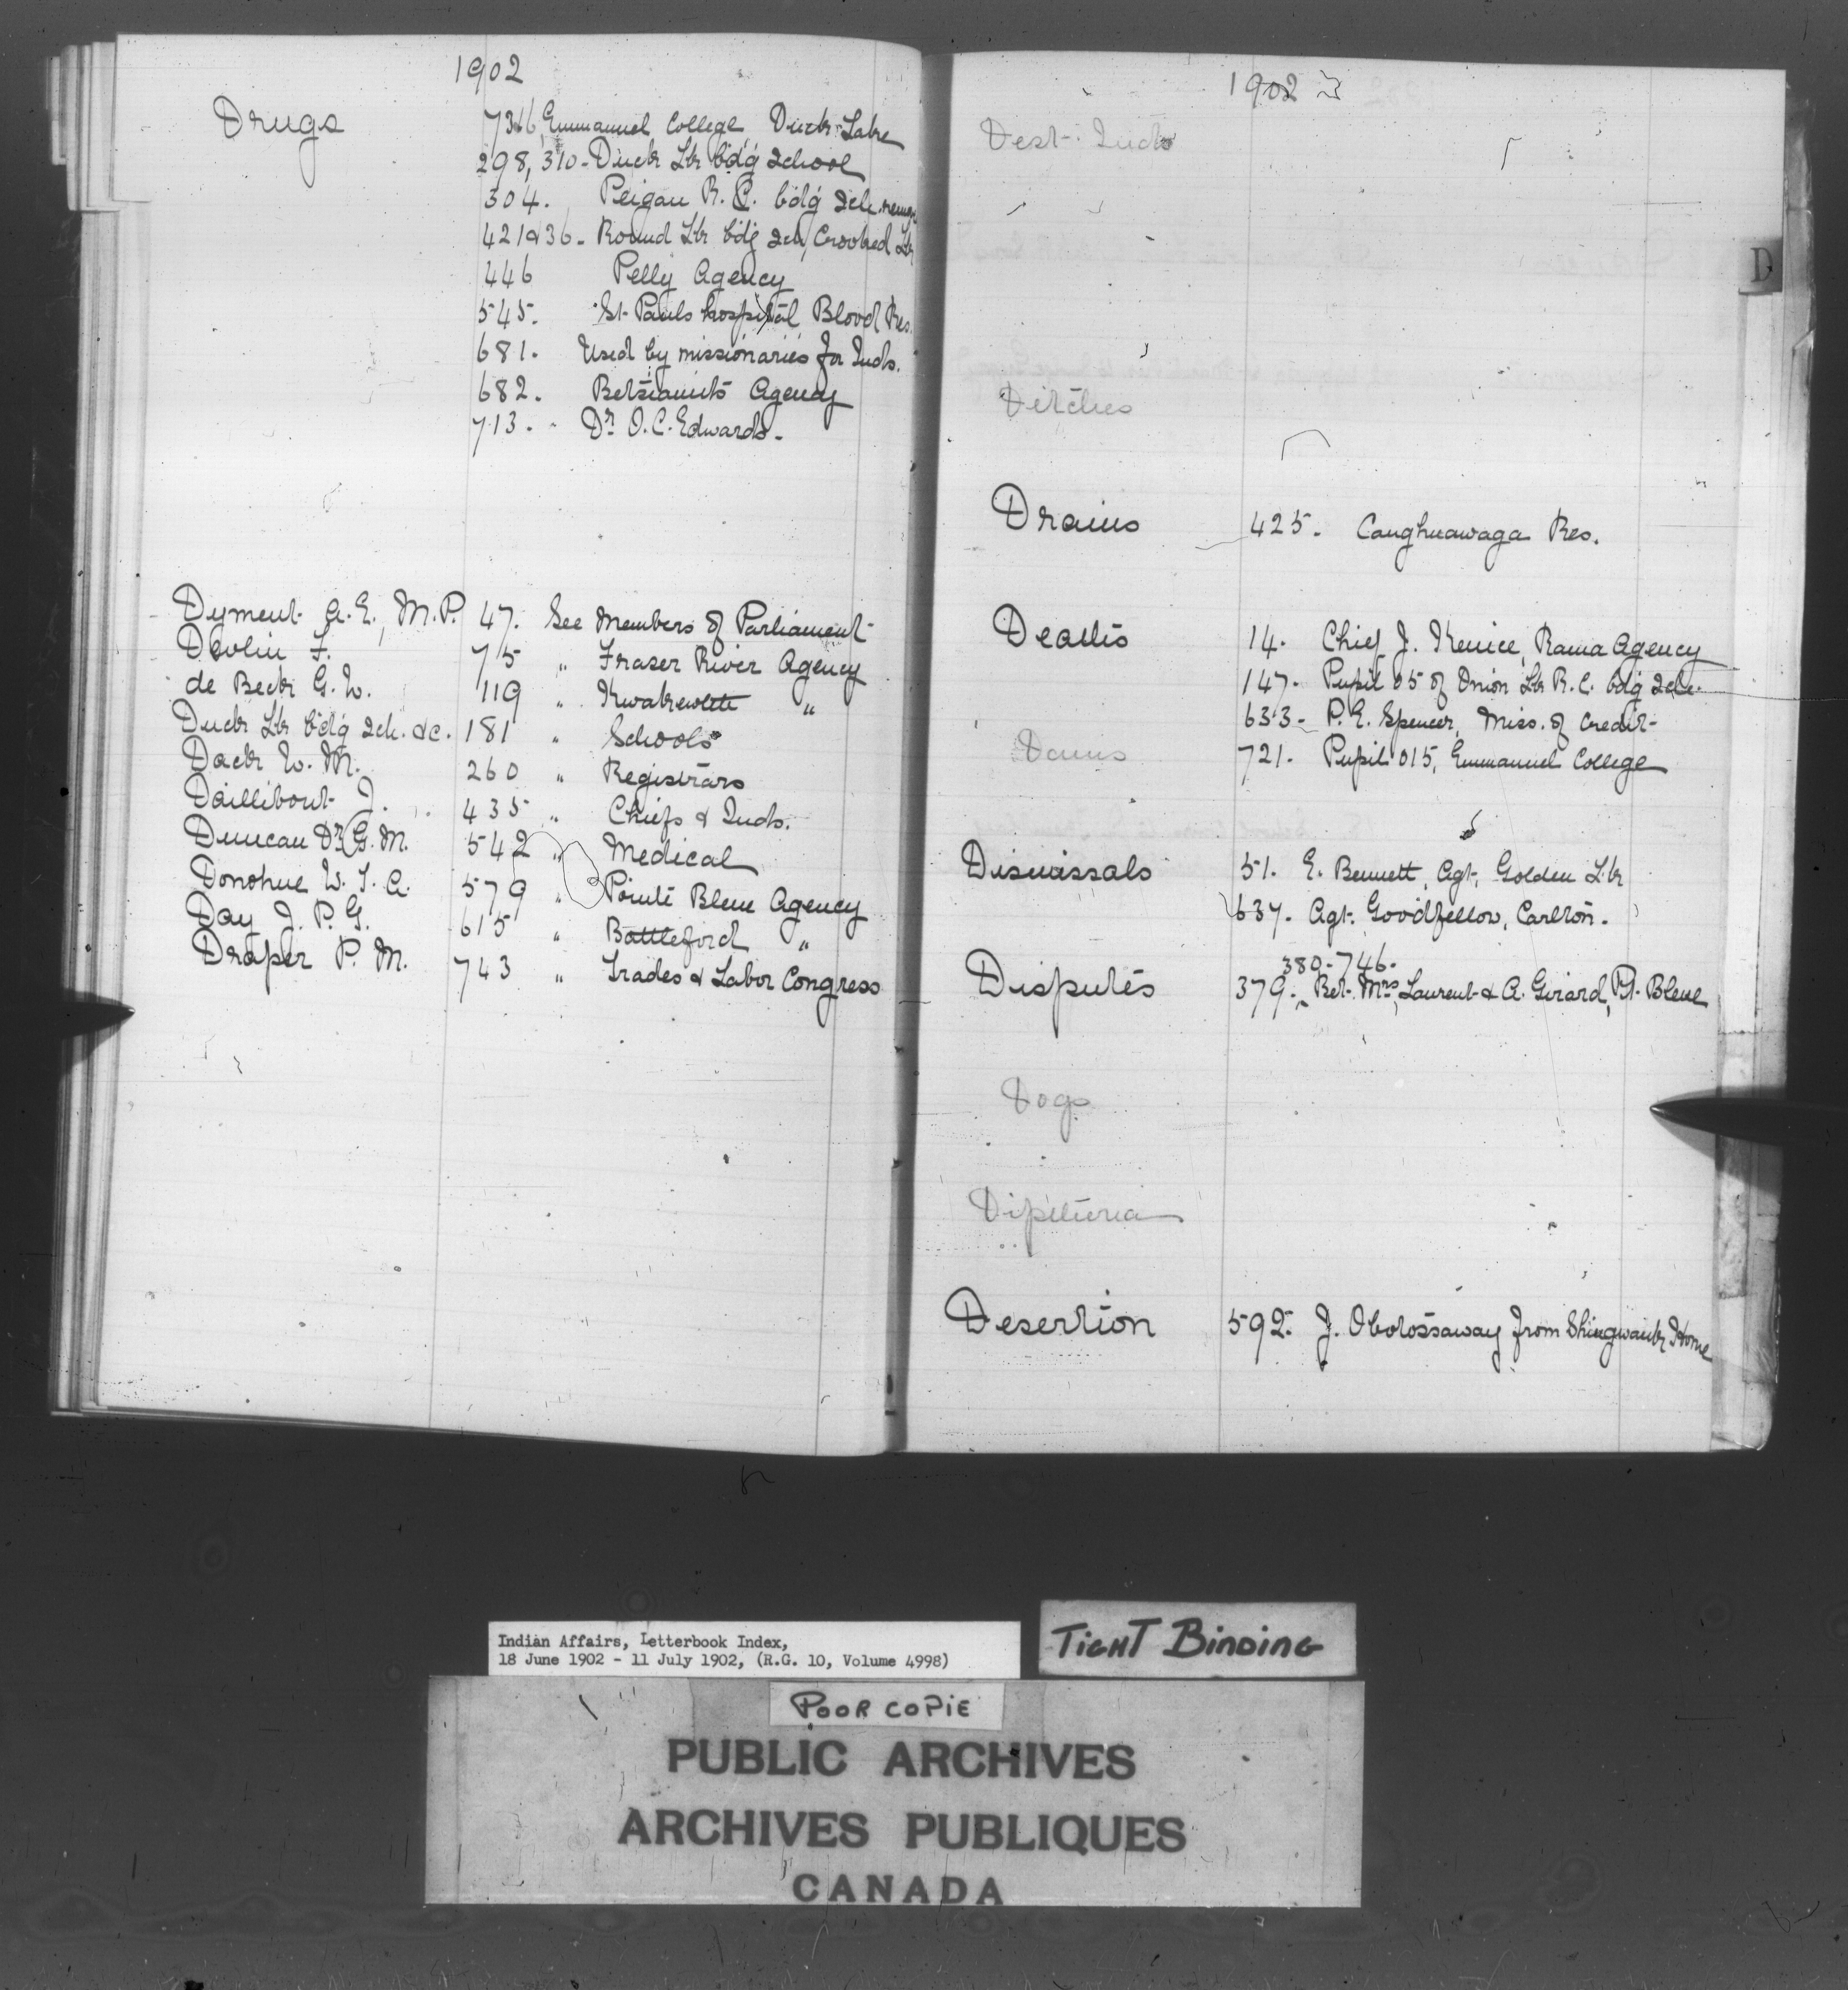 1902
Drugs
73½6, Emmanuel College Duck Lake
298, 310 - Duck Lk bdg School
304. Peigan R. C. bdg Sch.
421 & 36 - Round Lk bdg Sch, Crooked Lk
446 Pelly Agency
545. St. Pauls hospital Blood Res.
681. Used by missionaries for Inds.
682. Betsiamits Agency
713. - Dr. O. C. Edwards -
Dyment A. E., M.P. 47. See Members of Parliament
Devlin F. 75 " Fraser River Agency
de Beck G. W. 119 " Kwakewlth "
Duck Lk bdg Sch. &c. 181 " Schools
Dack W. M. 260 " Registrars
Daillibout J. 435 " Chiefs & Inds.
Duncan Dr. G. M. 542 " Medical
Donohue W. T. A. 579 " Pointe Bleue Agency
Day J. P. G. 615 " Battleford "
Draper P. M. 743 " Trades & Labor Congress
1902
Dest. Inds
Ditches
Drains 425. Caughnawaga Res.
Deaths 14. Chief J. Kenice, Rama Agency
147. Pupil 05 of Onion Lk R. C. bdg Sch.
633 - P. E. Spencer, Miss. of Credit
Dams 721. Pupil 015, Emmanuel College
Dismissals 51. E. Bennett, Agt. Golden Lk
637. Agt. Goodfellow, Carlton.
380 - 746 -
Disputes 379. Bet. Mrs. Laurent & A. Girard, Pt. Bleue
Dogs
Diptheria
Desertion 592. J. Obotossaway from Shingwauk Home
D
Indian Affairs, Letterbook Index,
18 June 1902 - 11 July 1902, (R.G. 10, Volume 4998)
TIGHT BINDING
POOR COPIE
PUBLIC ARCHIVES
ARCHIVES PUBLIQUES
CANADA